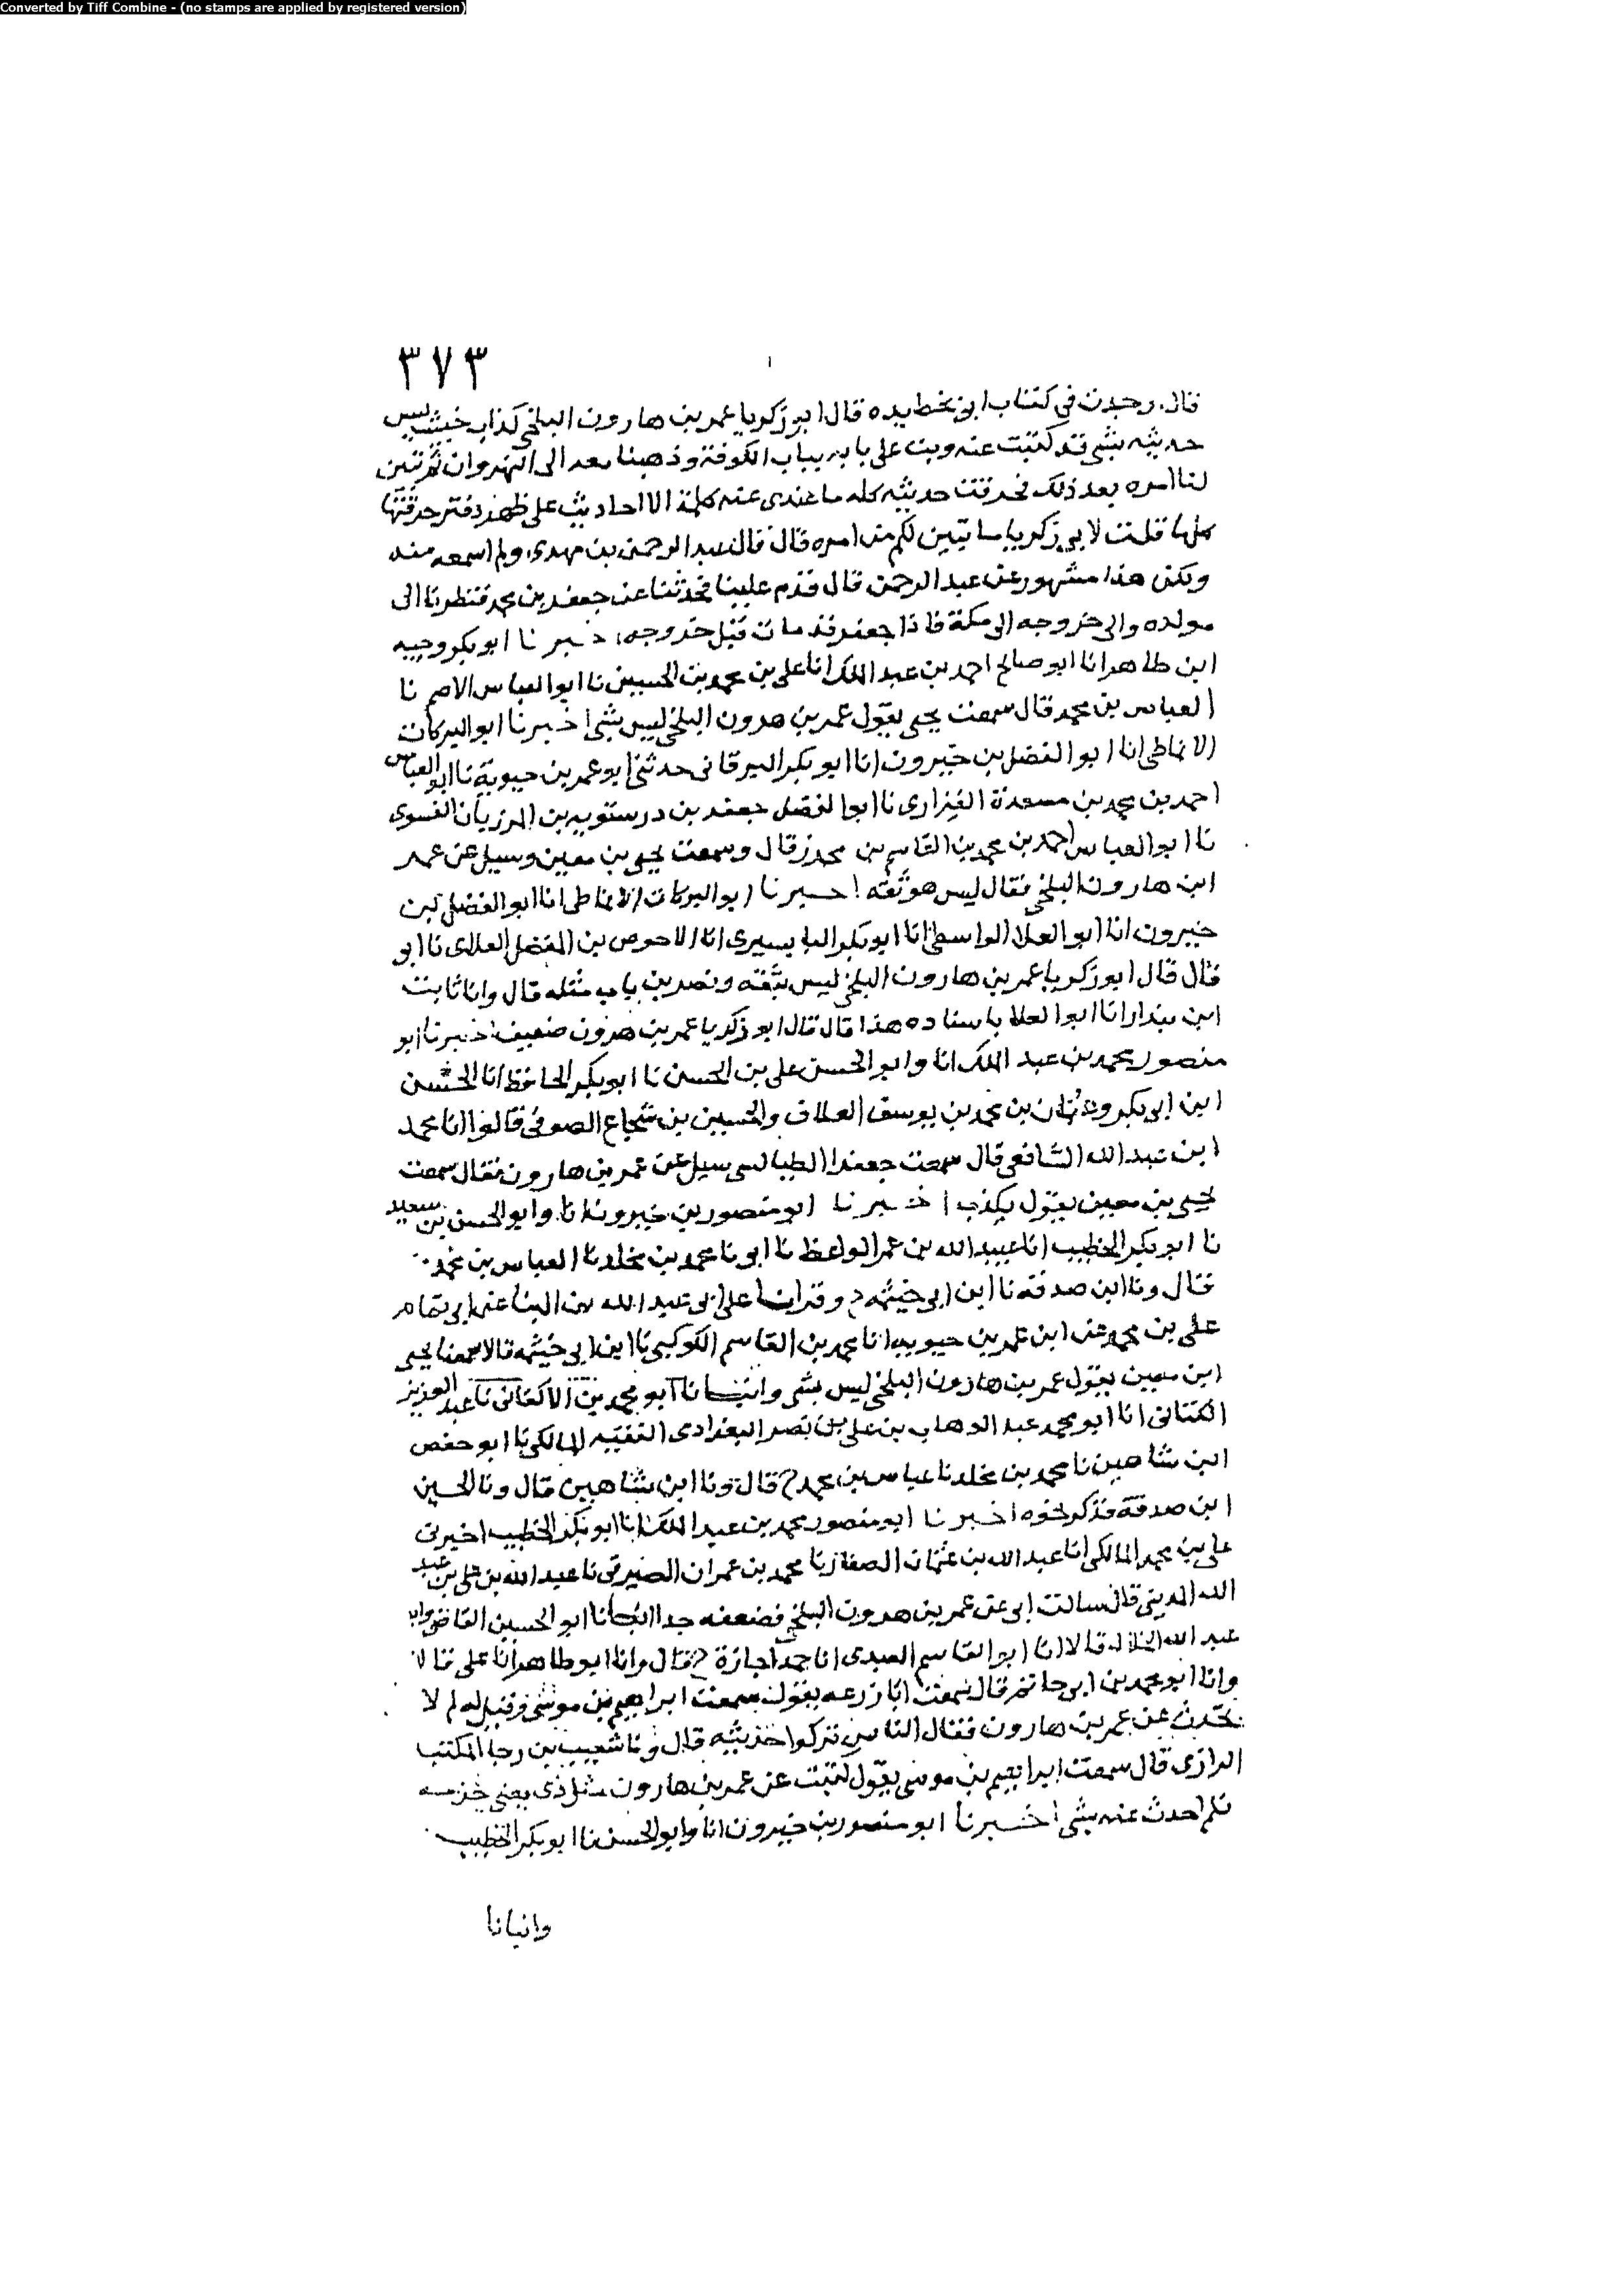 Converted by Tiff Combine - (no stamps are applied by registered version)
٣٧٣
قال وجدت في كتاب ابي بخط يده قال ابو زكريا عمر بن هارون البلخي كذاب خبيث ليس
حديثه بشي قد كتبت عنه وبت على بابه بباب الكوفة وذهبنا معه الى النهروان ثم تبين
لنا امره بعد ذلك فحرقت حديثه كله ما عندي عنه كلمة الا احاديث على ظهر دفتر حرقتها
كلها قلت لابي زكريا ما تبين لكم من امره قال قال عبد الرحمن بن مهدي ولم اسمعه منه
ولكن هذا مشهور عن عبد الرحمن قال قدم علينا فحدثنا عن جعفر بن محمد فنظرنا الى
مولده والى خروجه الى مكة فاذا جعفر قد مات قبل خروجه اخبرنا ابو بكر وجيه
ابن طاهر انا ابو صالح احمد بن عبد الملك انا علي بن محمد بن الحسين نا ابو العباس الاصم نا
العباس بن محمد قال سمعت يحيى يقول عمر بن هرون البلخي ليس بشي اخبرنا ابو البركات
الانماطي انا ابو الفضل بن خيرون انا ابو بكر البرقاني حدثني ابو عمر بن حيوية نا ابو العباس
احمد بن محمد بن مسعدة الفزاري نا ابو الفضل جعفر بن درستويه بن المرزبان الفسوي
نا ابو العباس احمد بن محمد بن القاسم بن محرز قال وسمعت يحيى بن معين وسيل عن عمر
ابن هارون البلخي فقال ليس هو ثقه اخبرنا ابو البركات الانماطي انا ابو الفضل بن
خيرون انا ابو العلا الواسطي انا ابو بكر البابسيري انا الاحوص بن المفضل العلابي نا ابو
قال قال ابو زكريا عمر بن هارون البلخي ليس بثقه ونصر بن باب مثله قال وانا ثابت
ابن بندار انا ابو العلا باسناده هذا قال قال ابو زكريا عمر بن هرون ضعيف اخبرنا ابو
منصور محمد بن عبد الملك انا وابو الحسن علي بن الحسن نا ابو بكر الحافظ انا الحسن
ابن ابي بكر وعثمان بن محمد بن يوسف العلاف والحسين بن شجاع الصوفي قالوا انا محمد
ابن عبد الله الشافعي قال سمعت جعفرا الطيالسي سيل عن عمر بن هارون فقال سمعت
يحيى بن معين يقول يكذب اخبرنا ابو منصور بن خيرون انا وابو الحسن بن سعيد
نا ابو بكر الخطيب انا عبيد الله بن عمر الواعظ نا ابو نا محمد بن مخلد نا العباس بن محمد
قال ونا ابن صدقه نا ابن ابي خيثمه ح وقرانا على ابي عبد الله بن البنا عن ابي تمام
علي بن محمد عن ابن عمر بن حيويه انا محمد بن القاسم الكوكبي نا ابن ابي خيثمه قالا سمعنا يحيى
ابن معين يقول عمر بن هارون البلخي ليس بشي وانبانا ابو محمد بن الاكفاني نا عبد العزيز
الكتاني انا ابو محمد عبد الوهاب بن علي بن نصر البغدادي الفقيه المالكي نا ابو حفص
ابن شاهين نا محمد بن مخلد نا عباس بن محمد ح قال ونا ابن شاهين قال ونا الحسين
ابن صدقة فذكر نحوه اخبرنا ابو منصور محمد بن عبد الملك انا ابو بكر الخطيب اخبرني
علي بن محمد المالكي انا عبد الله بن عثمان الصفار نا محمد بن عمران الصيرفي نا عبد الله بن علي بن عبد
الله المديني قال سالت ابي عن عمر بن هرون البلخي فضعفه جدا انبانا ابو الحسين القاضي وابو
عبد الله الخلال قالا انا ابو القاسم العبدي انا حمد اجازة ح قال وانا ابو طاهر انا علي قالا
وانا ابو محمد بن ابي حاتم قال سمعت ابا زرعه يقول سمعت ابراهيم بن موسى وقيل له لم لا
تحدث عن عمر بن هارون فقال الناس تركوا حديثه قال ونا شعيب بن رجا المكتب
الرازي قال سمعت ابراهيم بن موسى يقول كتبت عن عمر بن هارون مثل ذي يعني حزمه
فلم احدث عنه بشي اخبرنا ابو منصور بن خيرون انا وابو الحسن نا ابو بكر الخطيب
وانبانا